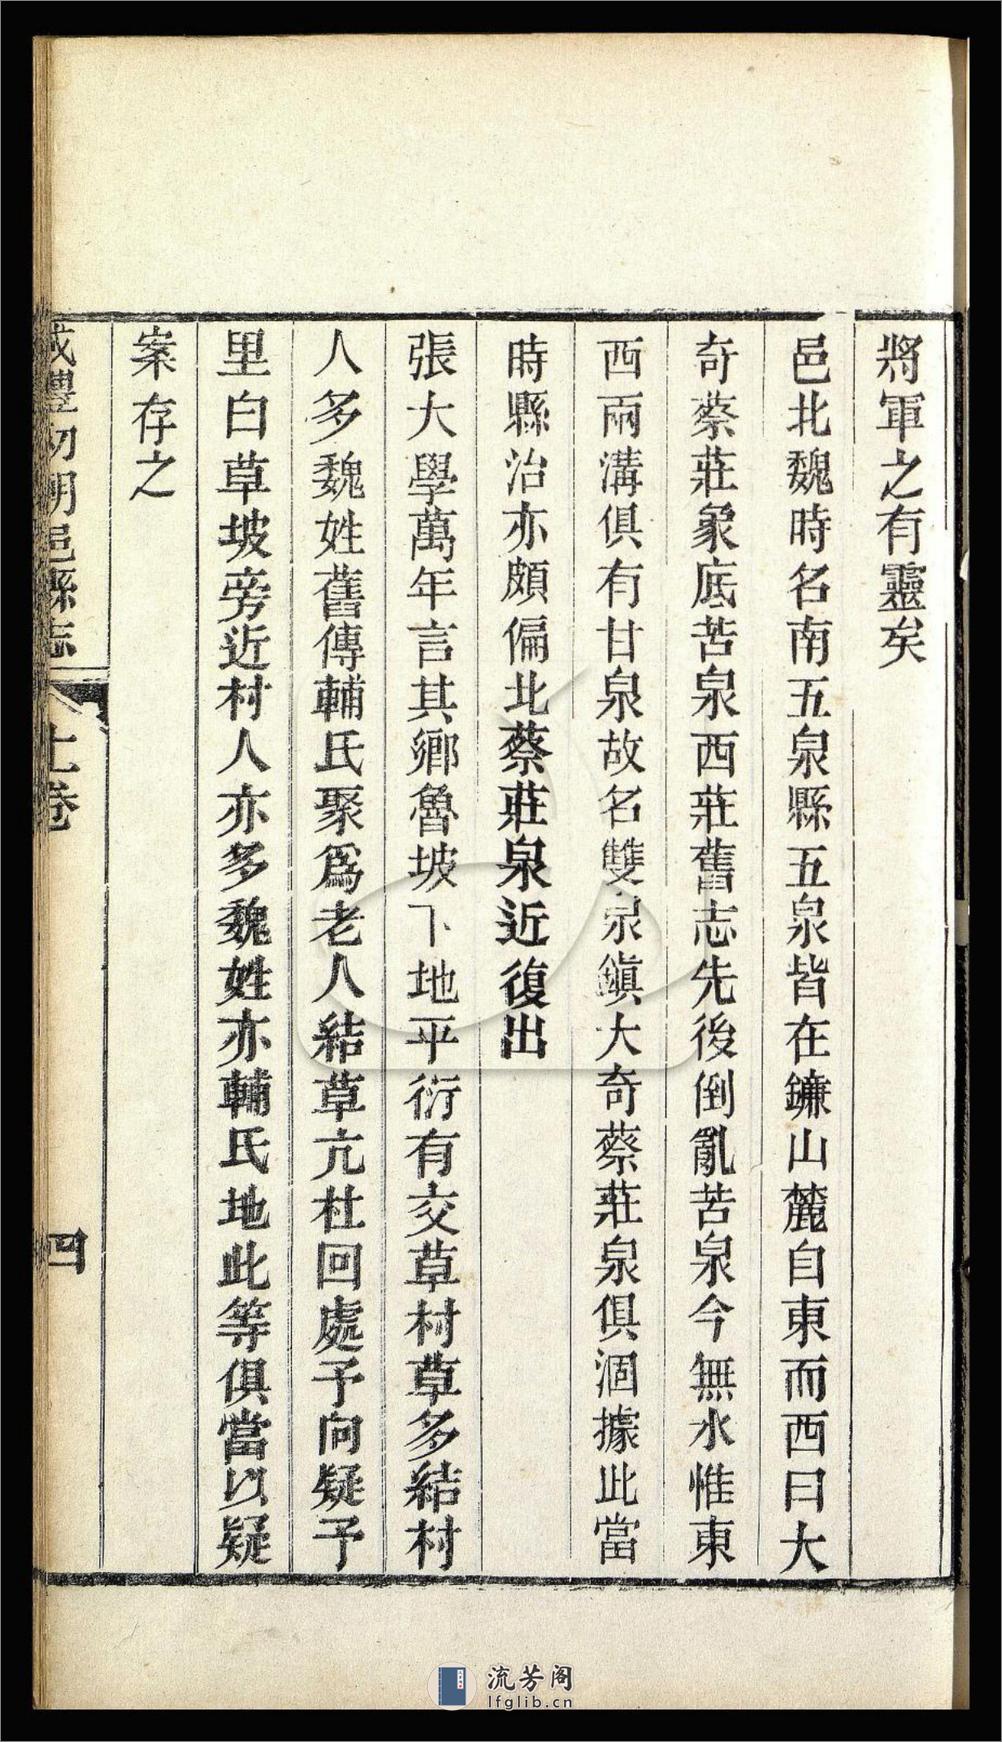 將軍之有靈矣
邑北魏時名南五泉縣五泉皆在鐮山麓自東而西曰大
奇蔡莊象底苦泉西莊舊志先後倒亂苦泉今無水惟東
西兩溝俱有甘泉故名雙泉鎮大奇蔡莊泉俱涸據此當
時縣治亦頗偏北蔡莊泉近復出
張大學萬年言其鄉魯坡下地平衍有交草村草多結村
人多魏姓舊傳輔氏聚為老人結草亢杜回處予向疑予
里白草坡旁近村人亦多魏姓亦輔氏地此等俱當以疑
案存之
咸豐初朝邑縣志 上卷 四
流芳阁
lfglib.cn